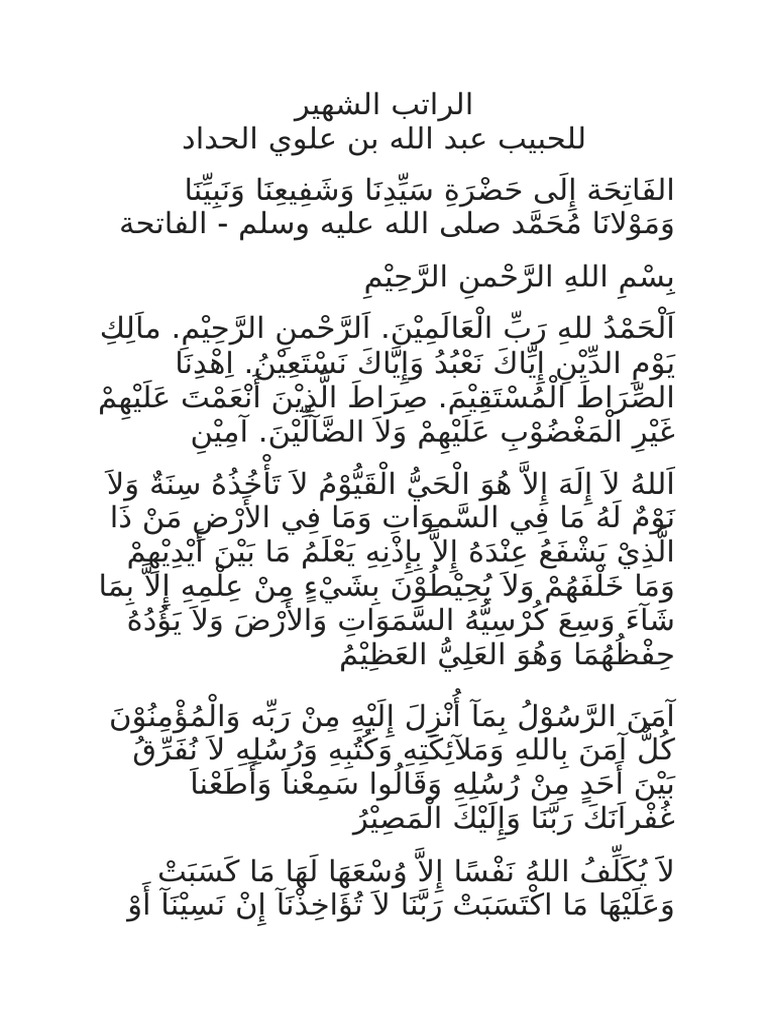 الراتب الشهير
للحبيب عبد الله بن علوي الحداد
الفَاتِحَة إِلَى حَضْرَةِ سَيِّدِنَا وَشَفِيعِنَا وَنَبِيِّنَا
وَمَوْلانَا مُحَمَّد صلى الله عليه وسلم - الفاتحة
بِسْمِ اللهِ الرَّحْمنِ الرَّحِيْمِ
اَلْحَمْدُ للهِ رَبِّ الْعَالَمِيْنَ. اَلرَّحْمنِ الرَّحِيْمِ. ماَلِكِ
يَوْمِ الدِّيْنِ إِيَّاكَ نَعْبُدُ وَإِيَّاكَ نَسْتَعِيْنُ. اِهْدِنَا
الصِّرَاطَ الْمُسْتَقِيْمَ. صِرَاطَ الَّذِيْنَ أَنْعَمْتَ عَلَيْهِمْ
غَيْرِ الْمَغْضُوْبِ عَلَيْهِمْ وَلاَ الضَّآلِّيْنَ. آمِيْنِ
اَللهُ لاَ إِلَهَ إِلاَّ هُوَ الْحَيُّ الْقَيُّوْمُ لاَ تَأْخُذُهُ سِنَةٌ وَلاَ
نَوْمٌ لَهُ مَا فِي السَّموَاتِ وَمَا فِي الأَرْضِ مَنْ ذَا
الَّذِيْ يَشْفَعُ عِنْدَهُ إِلاَّ بِإِذْنِهِ يَعْلَمُ مَا بَيْنَ أَيْدِيْهِمْ
وَمَا خَلْفَهُمْ وَلاَ يُحِيْطُوْنَ بِشَيْءٍ مِنْ عِلْمِهِ إِلاَّ بِمَا
شَآءَ وَسِعَ كُرْسِيُّهُ السَّمَوَاتِ وَالأَرْضَ وَلاَ يَؤُدُهُ
حِفْظُهُمَا وَهُوَ العَلِيُّ العَظِيْمُ
آمَنَ الرَّسُوْلُ بِمَآ أُنْزِلَ إِلَيْهِ مِنْ رَبِّه وَالْمُؤْمِنُوْنَ
كُلٌّ آمَنَ بِاللهِ وَمَلآئِكَتِهِ وَكُتُبِهِ وَرُسُلِهِ لاَ نُفَرِّقُ
بَيْنَ أَحَدٍ مِنْ رُسُلِهِ وَقَالُوا سَمِعْناَ وَأَطَعْناَ
غُفْراَنَكَ رَبَّنَا وَإِلَيْكَ الْمَصِيْرُ
لاَ يُكَلِّفُ اللهُ نَفْسًا إِلاَّ وُسْعَهَا لَهَا مَا كَسَبَتْ
وَعَلَيْهَا مَا اكْتَسَبَتْ رَبَّنَا لاَ تُؤَاخِذْنَآ إِنْ نَسِيْنَآ أَوْ